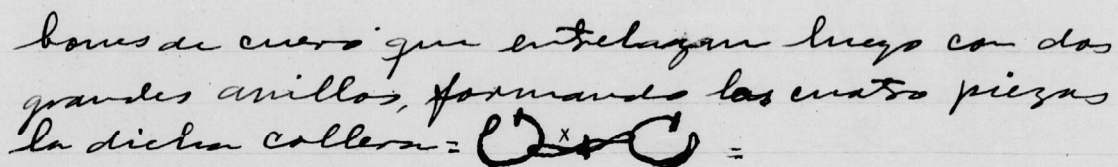 bones de cuero que entrelazan luego con dos
grandes anillos, formando las cuatro piezas
la dicha collera = x =